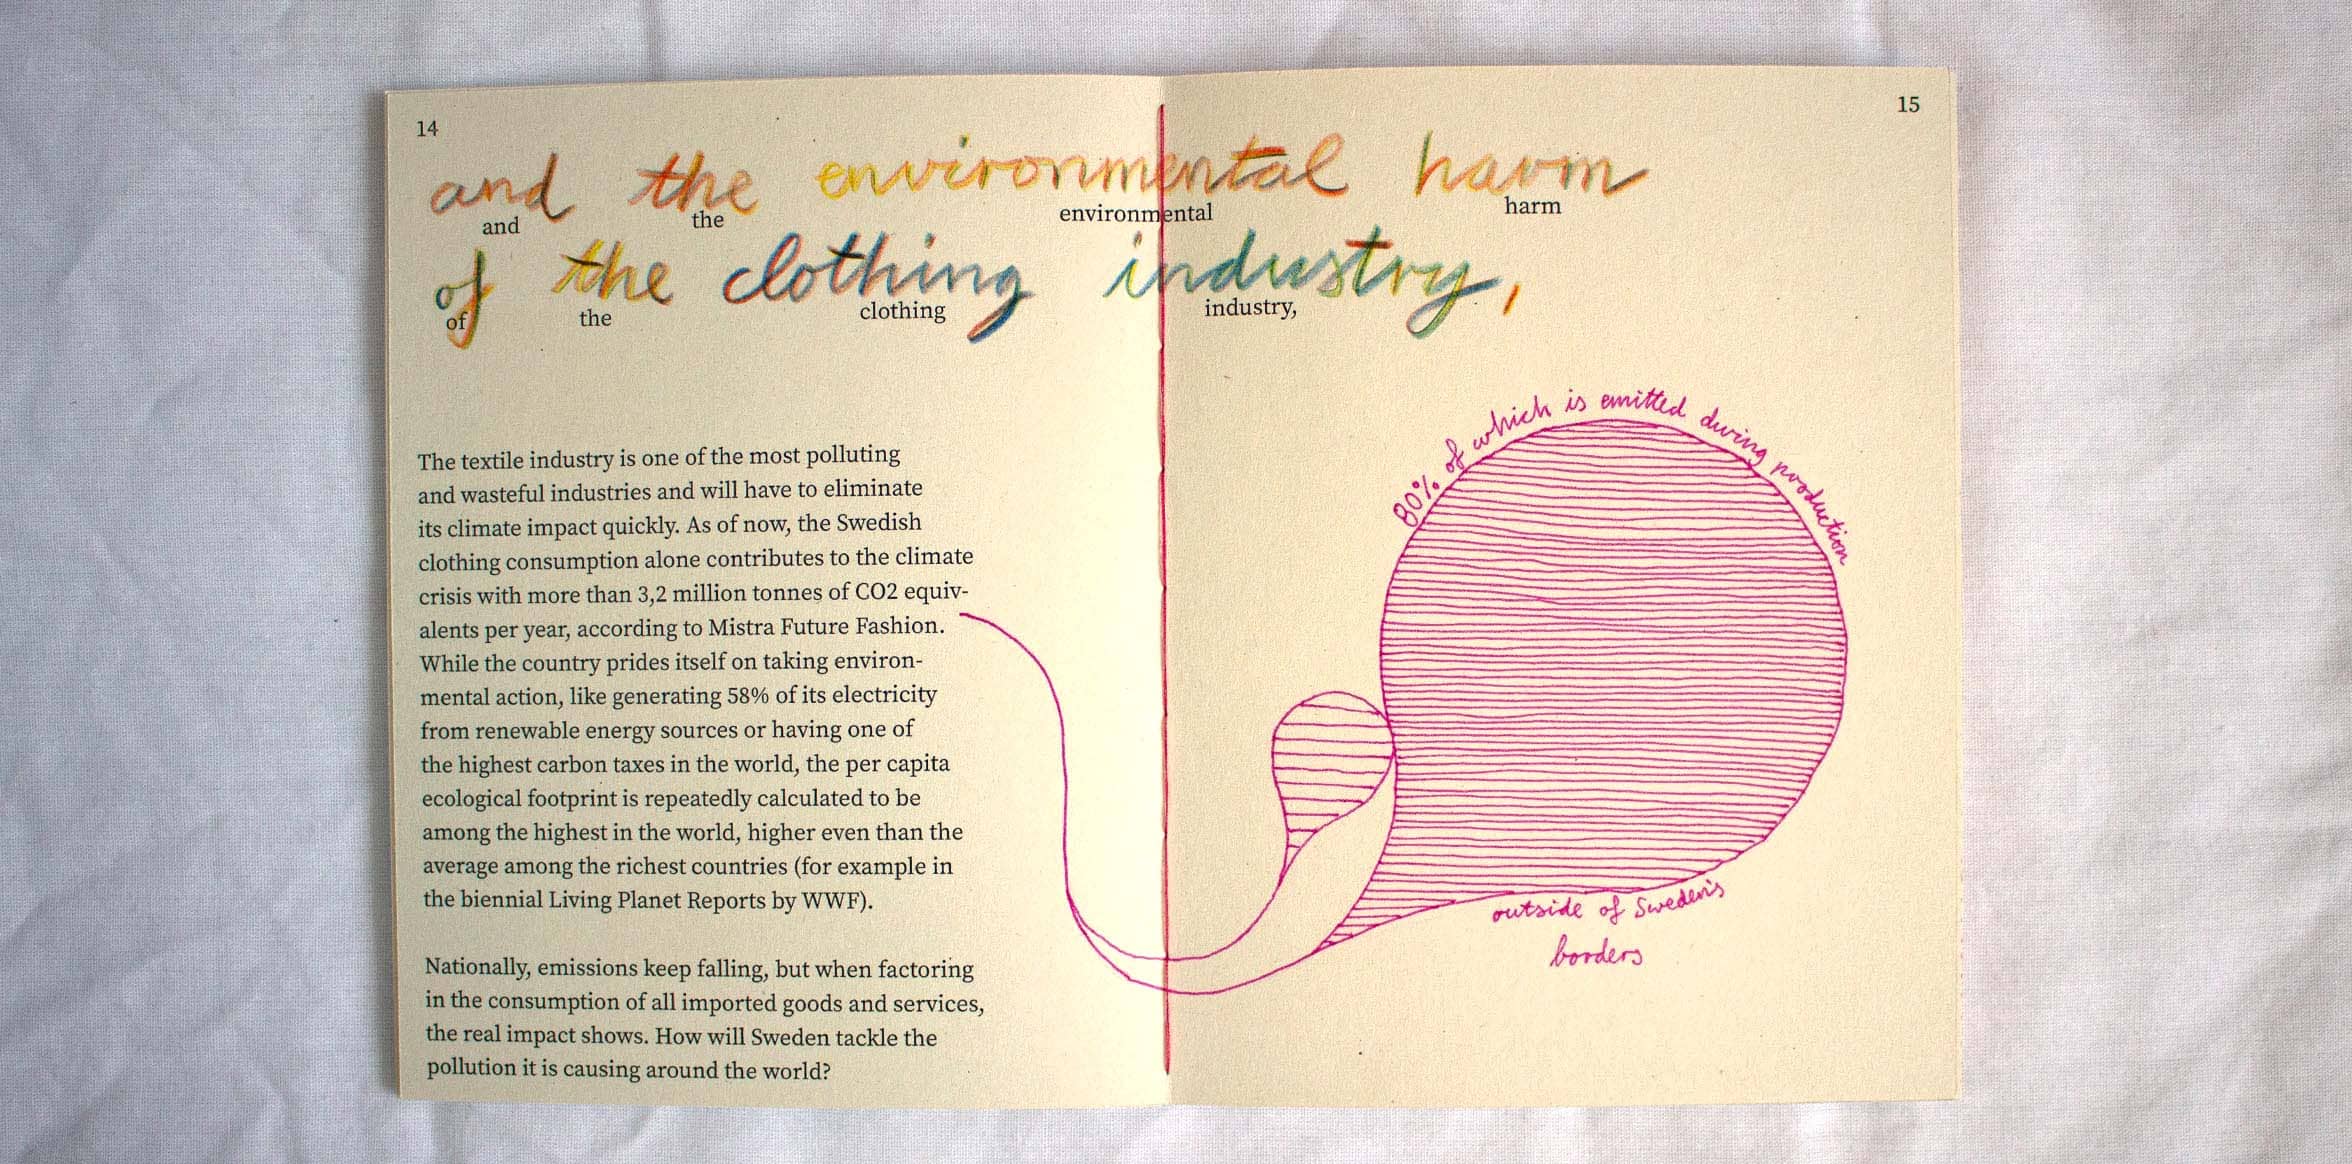 14
15
and the environmental harm
and the environmental harm
of the clothing industry,
of the clothing industry,
The textile industry is one of the most polluting
and wasteful industries and will have to eliminate
its climate impact quickly. As of now, the Swedish
clothing consumption alone contributes to the climate
crisis with more than 3,2 million tonnes of CO2 equiv-
alents per year, according to Mistra Future Fashion.
While the country prides itself on taking environ-
mental action, like generating 58% of its electricity
from renewable energy sources or having one of
the highest carbon taxes in the world, the per capita
ecological footprint is repeatedly calculated to be
among the highest in the world, higher even than the
average among the richest countries (for example in
the biennial Living Planet Reports by WWF).
Nationally, emissions keep falling, but when factoring
in the consumption of all imported goods and services,
the real impact shows. How will Sweden tackle the
pollution it is causing around the world?
80% of which is emitted during production
outside of Sweden's
borders